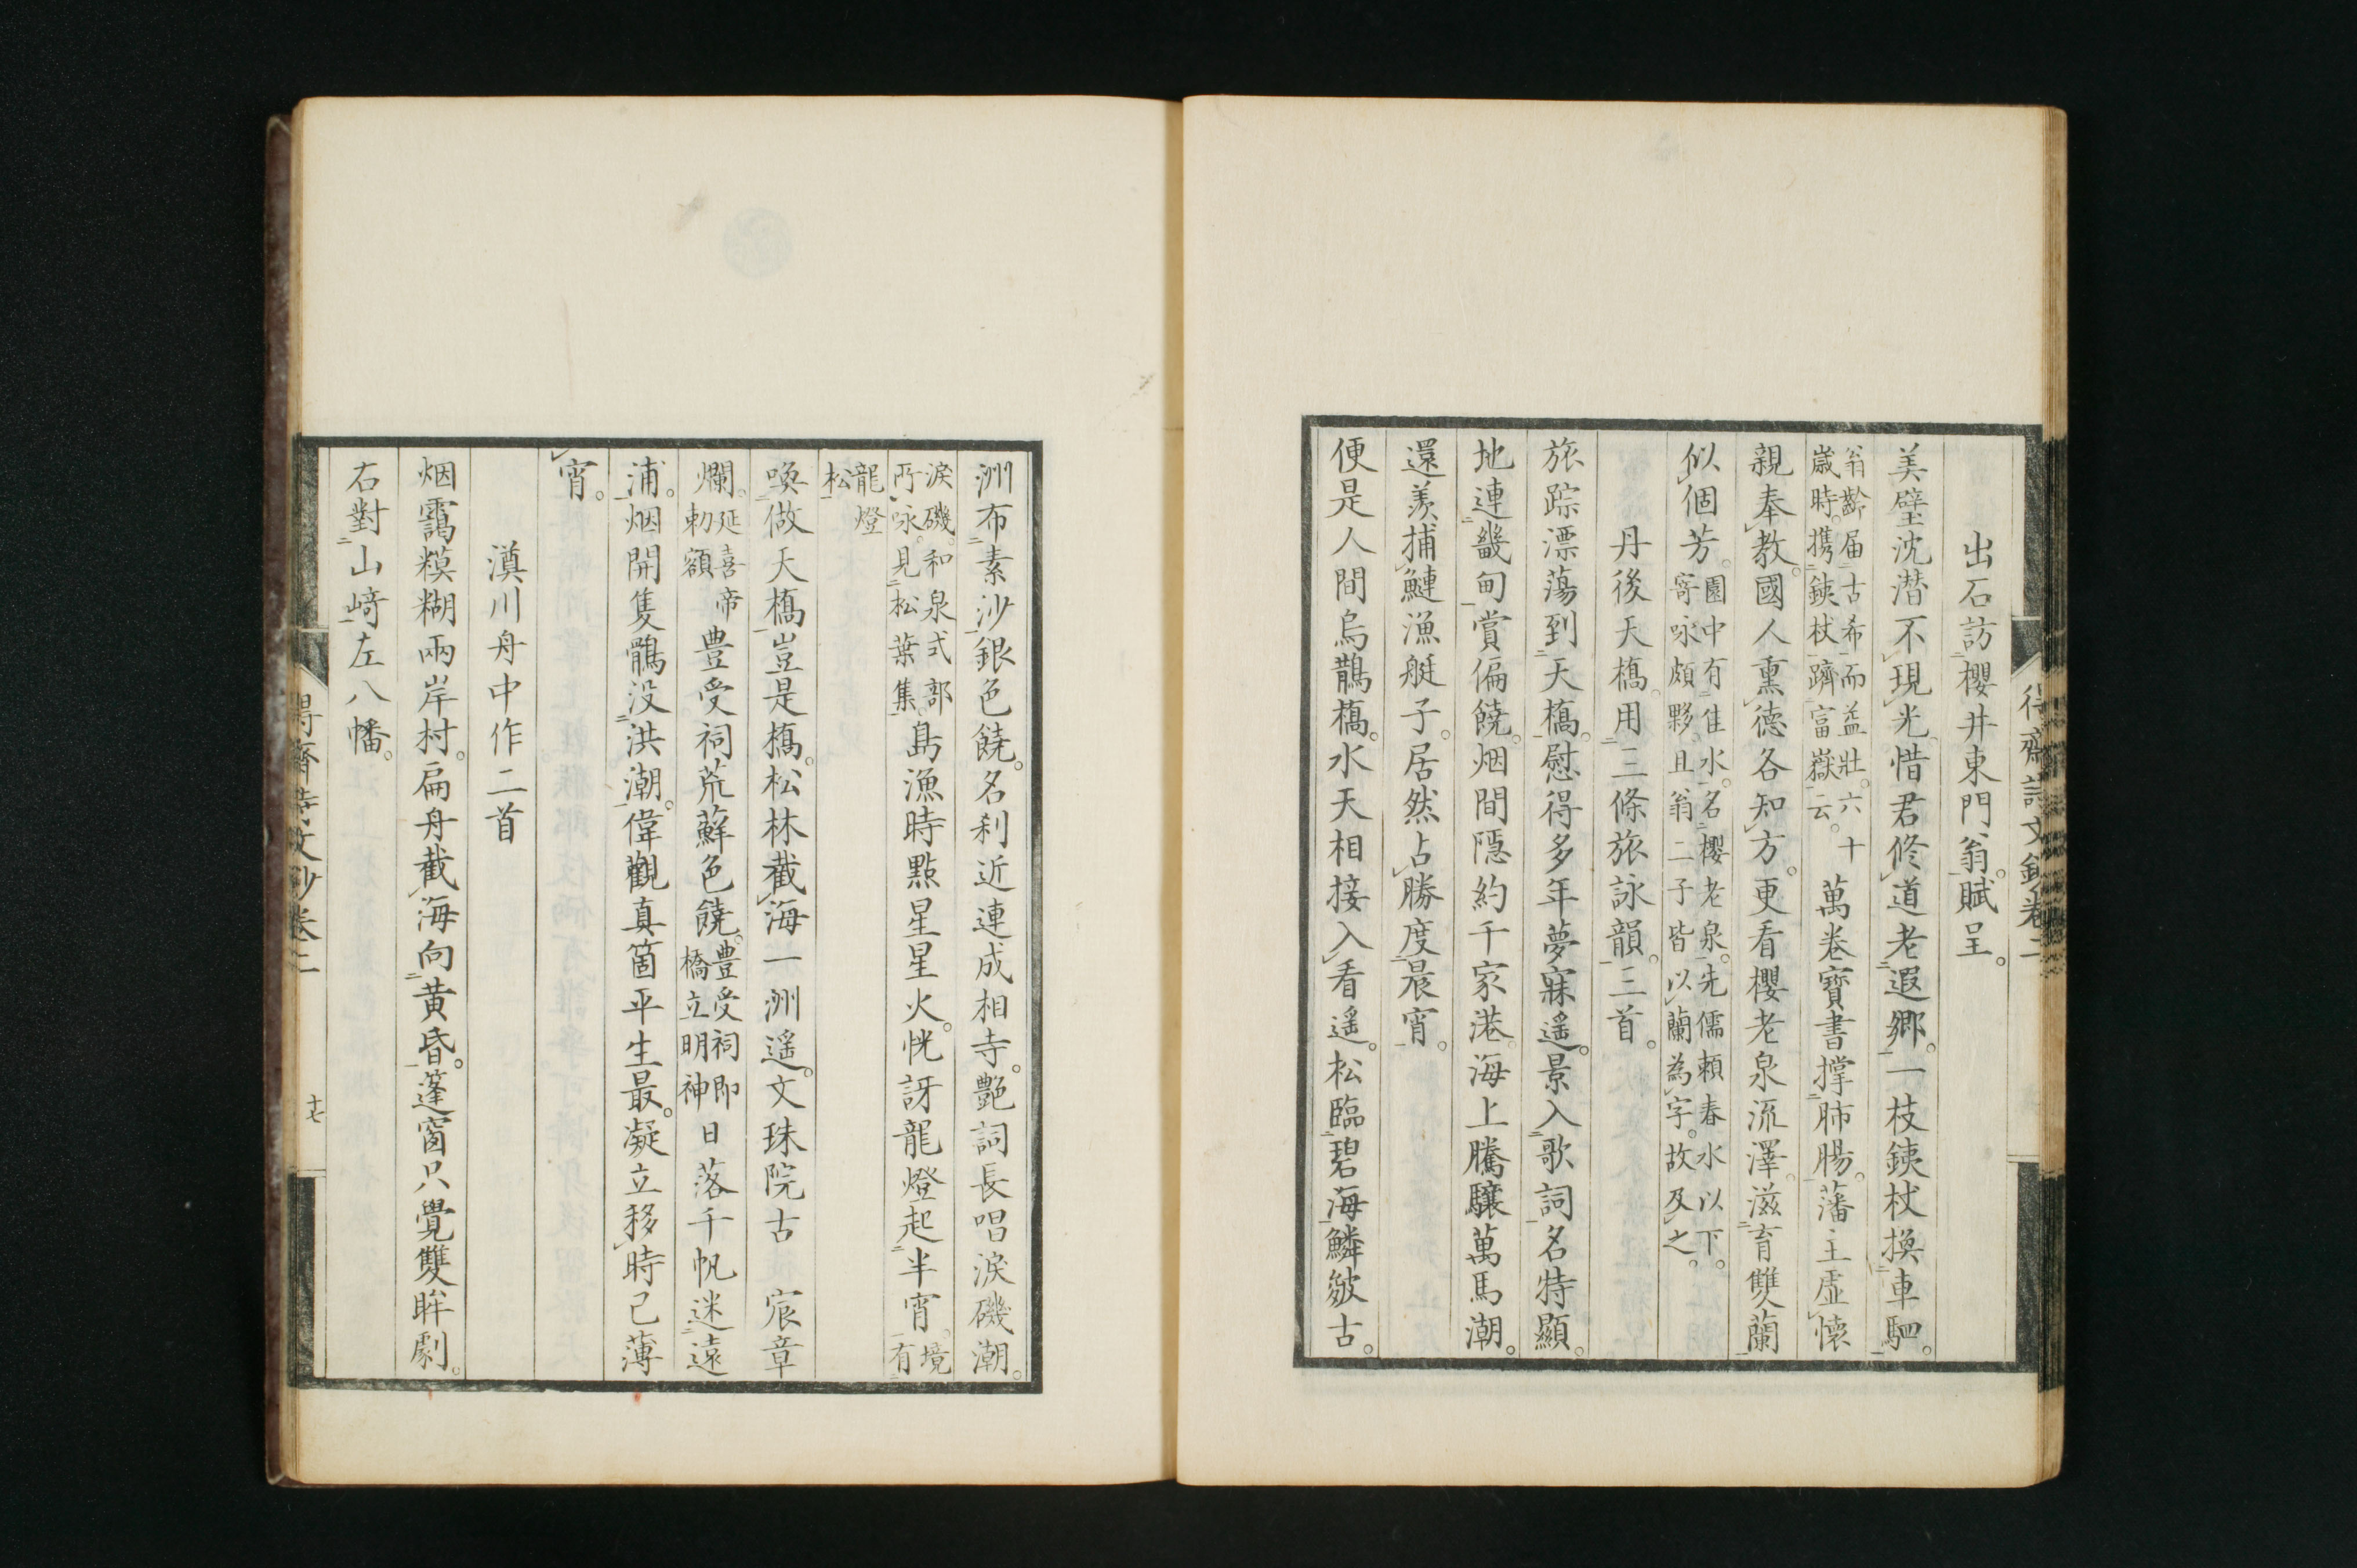 出石訪櫻井東門翁。賦呈。
美璧沈潛不現光惜君修道老遐鄉。一枝鐵杖換車駟。
翁齡届古希而益壯。六十
歲時。携鐵杖躋富嶽云。
萬卷寶書撑肺腸。藩主虛懷
親奉教。國人熏德各知方。更看櫻老泉流澤。滋育雙蘭
似個芳。
園中有佳水。名櫻老泉。先儒賴春水以下。
寄咏頗夥。且翁二子皆以蘭為字。故及之。
丹後天橋。用三條旅詠韻。三首。
旅踪漂蕩到天橋。慰得多年夢寐遙。景入歌詞名特顯。
地連畿甸賞偏饒。烟間隱約千家港。海上騰驤萬馬潮。
還羨捕鰱漁艇子。居然占勝度晨宵。
便是人間烏鵲橋。水天相接入看遙。松臨碧海鱗皴古。
洲布素沙銀色饒。名刹近連成相寺。艷詞長唱淚磯潮。
淚磯。和泉式部
所咏。見松葉集。
島漁時點星星火。恍訝龍燈起半宵。
境有
龍燈
松
喚做天橋豈是橋。松林截海一洲遙。文珠院古宸章
爛。
延喜帝
勅額
豊受祠荒蘚色饒。
豊受祠即
橋立明神
日落千帆迷遠
浦。烟開隻鶻没洪潮。偉觀真箇平生最。凝立移時已薄
宵。
澱川舟中作二首
烟靄糢糊兩岸村。扁舟截海向黄昏。篷窗只覺雙眸劇。
右對山﨑左八幡。
得齋詩文鈔卷二
十七